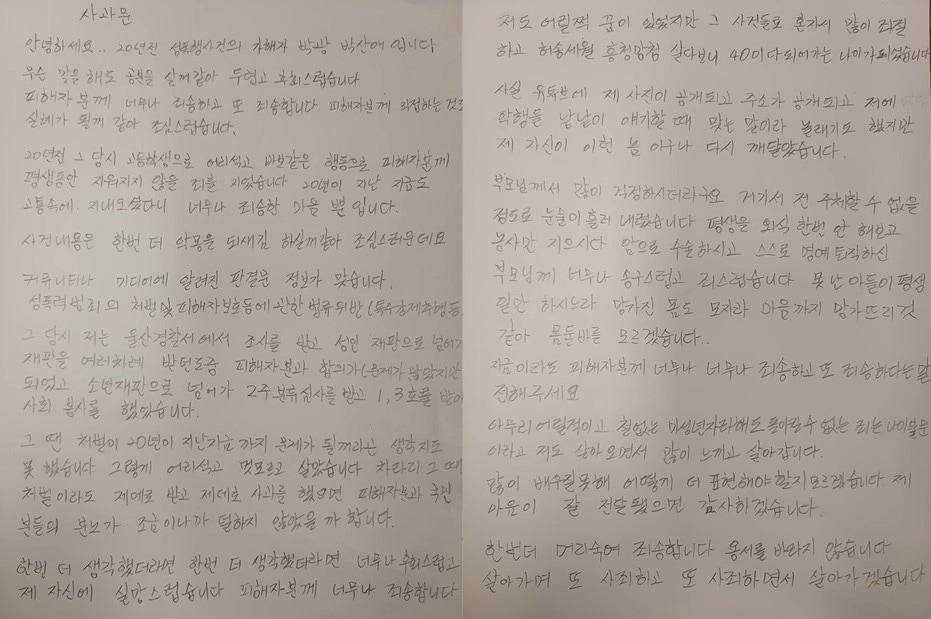 사과문
안녕하세요.. 20년전 성폭행사건의 가해자 박광 박상애입니다
무슨 말을 해도 공분을 살꺼같아 두렵고 후회스럽습니다
피해자분께 너무나 죄송하고 또 죄송합니다 피해자분께 걱정하는 것도
실례가 될꺼 같아 조심스럽습니다.
20년전 그 당시 고등학생으로 어리석고 바보같은 행동으로 피해자분께
평생동안 지워지지 않을 죄를 지었습니다 20년이 지난 지금도
고통속에 지내오셨다니 너무나 죄송한 마음 뿐입니다.
사건내용은 한번 더 악몽을 되새김 하실까같아 조심스러운데요
커뮤니티나 미디어에 알려진 판결문 정보가 맞습니다.
성폭력범죄의 처벌및 피해자보호등에 관한 법률위반 (특수강제추행등
그 당시 저는 울산경찰서에서 조사를 받고 성인 재판으로 넘어가
재판을 여러차례 받던도중 피해자분과 합의가(문제가 많았지만
되었고 소년재판으로 넘어가 2주분류심사를 받고 1,3호를 받아
사회 봉사를 했었습니다.
그 때 처벌이 20년이 지난지금 까지 문제가 될꺼라고 생각지도
못 했습니다 그렇게 어리석고 멋모르고 살았습니다 차라리 그 때
처벌이라도 제대로 받고 제대로 사과를 했으면 피해자분과 국민
분들의 분노가 조금이나마 덜하지 않았을까 합니다.
한번 더 생각했더라면 한번 더 생각했더라면 너무나 후회스럽고
제 자신에 실망스럽습니다 피해자분께 너무나 죄송합니다
저도 어릴적 꿈이 있었지만 그 사건들로 혼자서 많이 좌절
하고 허송세월 흥청망청 살다보니 40이 다되어가는 나이가되었습니다
사실 유튜브에 제 사진이 공개되고 주소가 공개되고 저에
악행들을 낱낱이 얘기할 때 맞는 말이라 놀래기도 했지만
제 자신이 이런 놈 이구나 다시 깨달았습니다.
부모님께서 많이 걱정하시더라구요 거기서 전 주체할 수 없을
정도로 눈물이 흘러 내렸습니다 평생을 외식 한번 안 해보고
농사만 지으시다 암으로 수술하시고 스스로 명예퇴직하신
부모님께 너무나 송구스럽고 죄스럽습니다 못난 아들이 평생
일만 하시느라 망가진 몸도 모자라 마음까지 망가뜨리것
같아 몸둘바를 모르겠습니다..
지금이라도 피해자분께 너무나 너무나 죄송하고 또 죄송하다는 말
전해주세요
아무리 어릴적이고 철없는 미성년자라해도 돌아갈 수 없는 죄는 나이불문
이라고 저도 살아오면서 많이 느끼고 살아갑니다.
많이 배우질못해 어떻게 더 표현해야할지모르겠습니다 제
마음이 잘 전달됐으면 감사하겠습니다.
한번더 머리숙여 죄송합니다 용서를 바라지 않습니다
살아가며 또 사죄하고 또 사죄하면서 살아가겠습니다